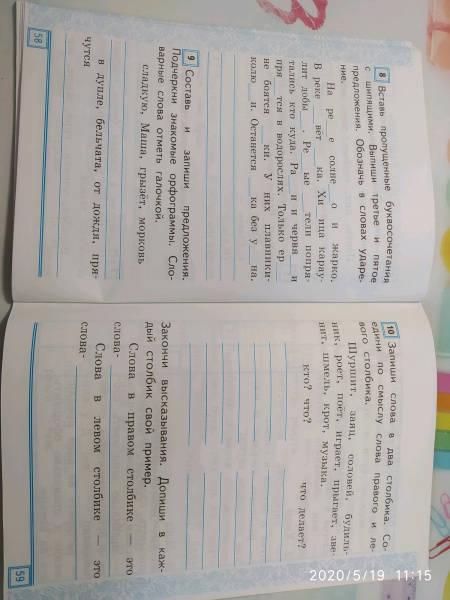 8 Вставь пропущенные буквосочетания
с шипящими. Выпиши третье и пятое
предложения. Обозначь в словах ударе-
ние.
На ре е солне о и жарко.
В реке вёт ка. Хи ица карау-
лит добы . Ре ые тели попря-
тались кто куда. Ра и и червя и
пря тся в водорослях. Только ер
не боятся ки. У них плавники-
колю и. Останется ка без у на.
9 Составь и запиши предложения.
Подчеркни знакомые орфограммы. Сло-
варные слова отметь галочкой.
сладкую, Маша, грызёт, морковь
в дупле, бельчата, от дождя, пря-
чутся
58
10 Запиши слова в два столбика. Со-
едини по смыслу слова правого и ле-
вого столбика.
Шуршит, заяц, соловей, будиль-
ник, роет, поёт, играет, прыгает, зве-
нит, шмель, крот, музыка.
кто? что? что делает?
Закончи высказывания. Допиши в каж-
дый столбик свой пример.
Слова в правом столбике — это
слова-
Слова в левом столбике — это
слова-
59
2020/5/19 11:15